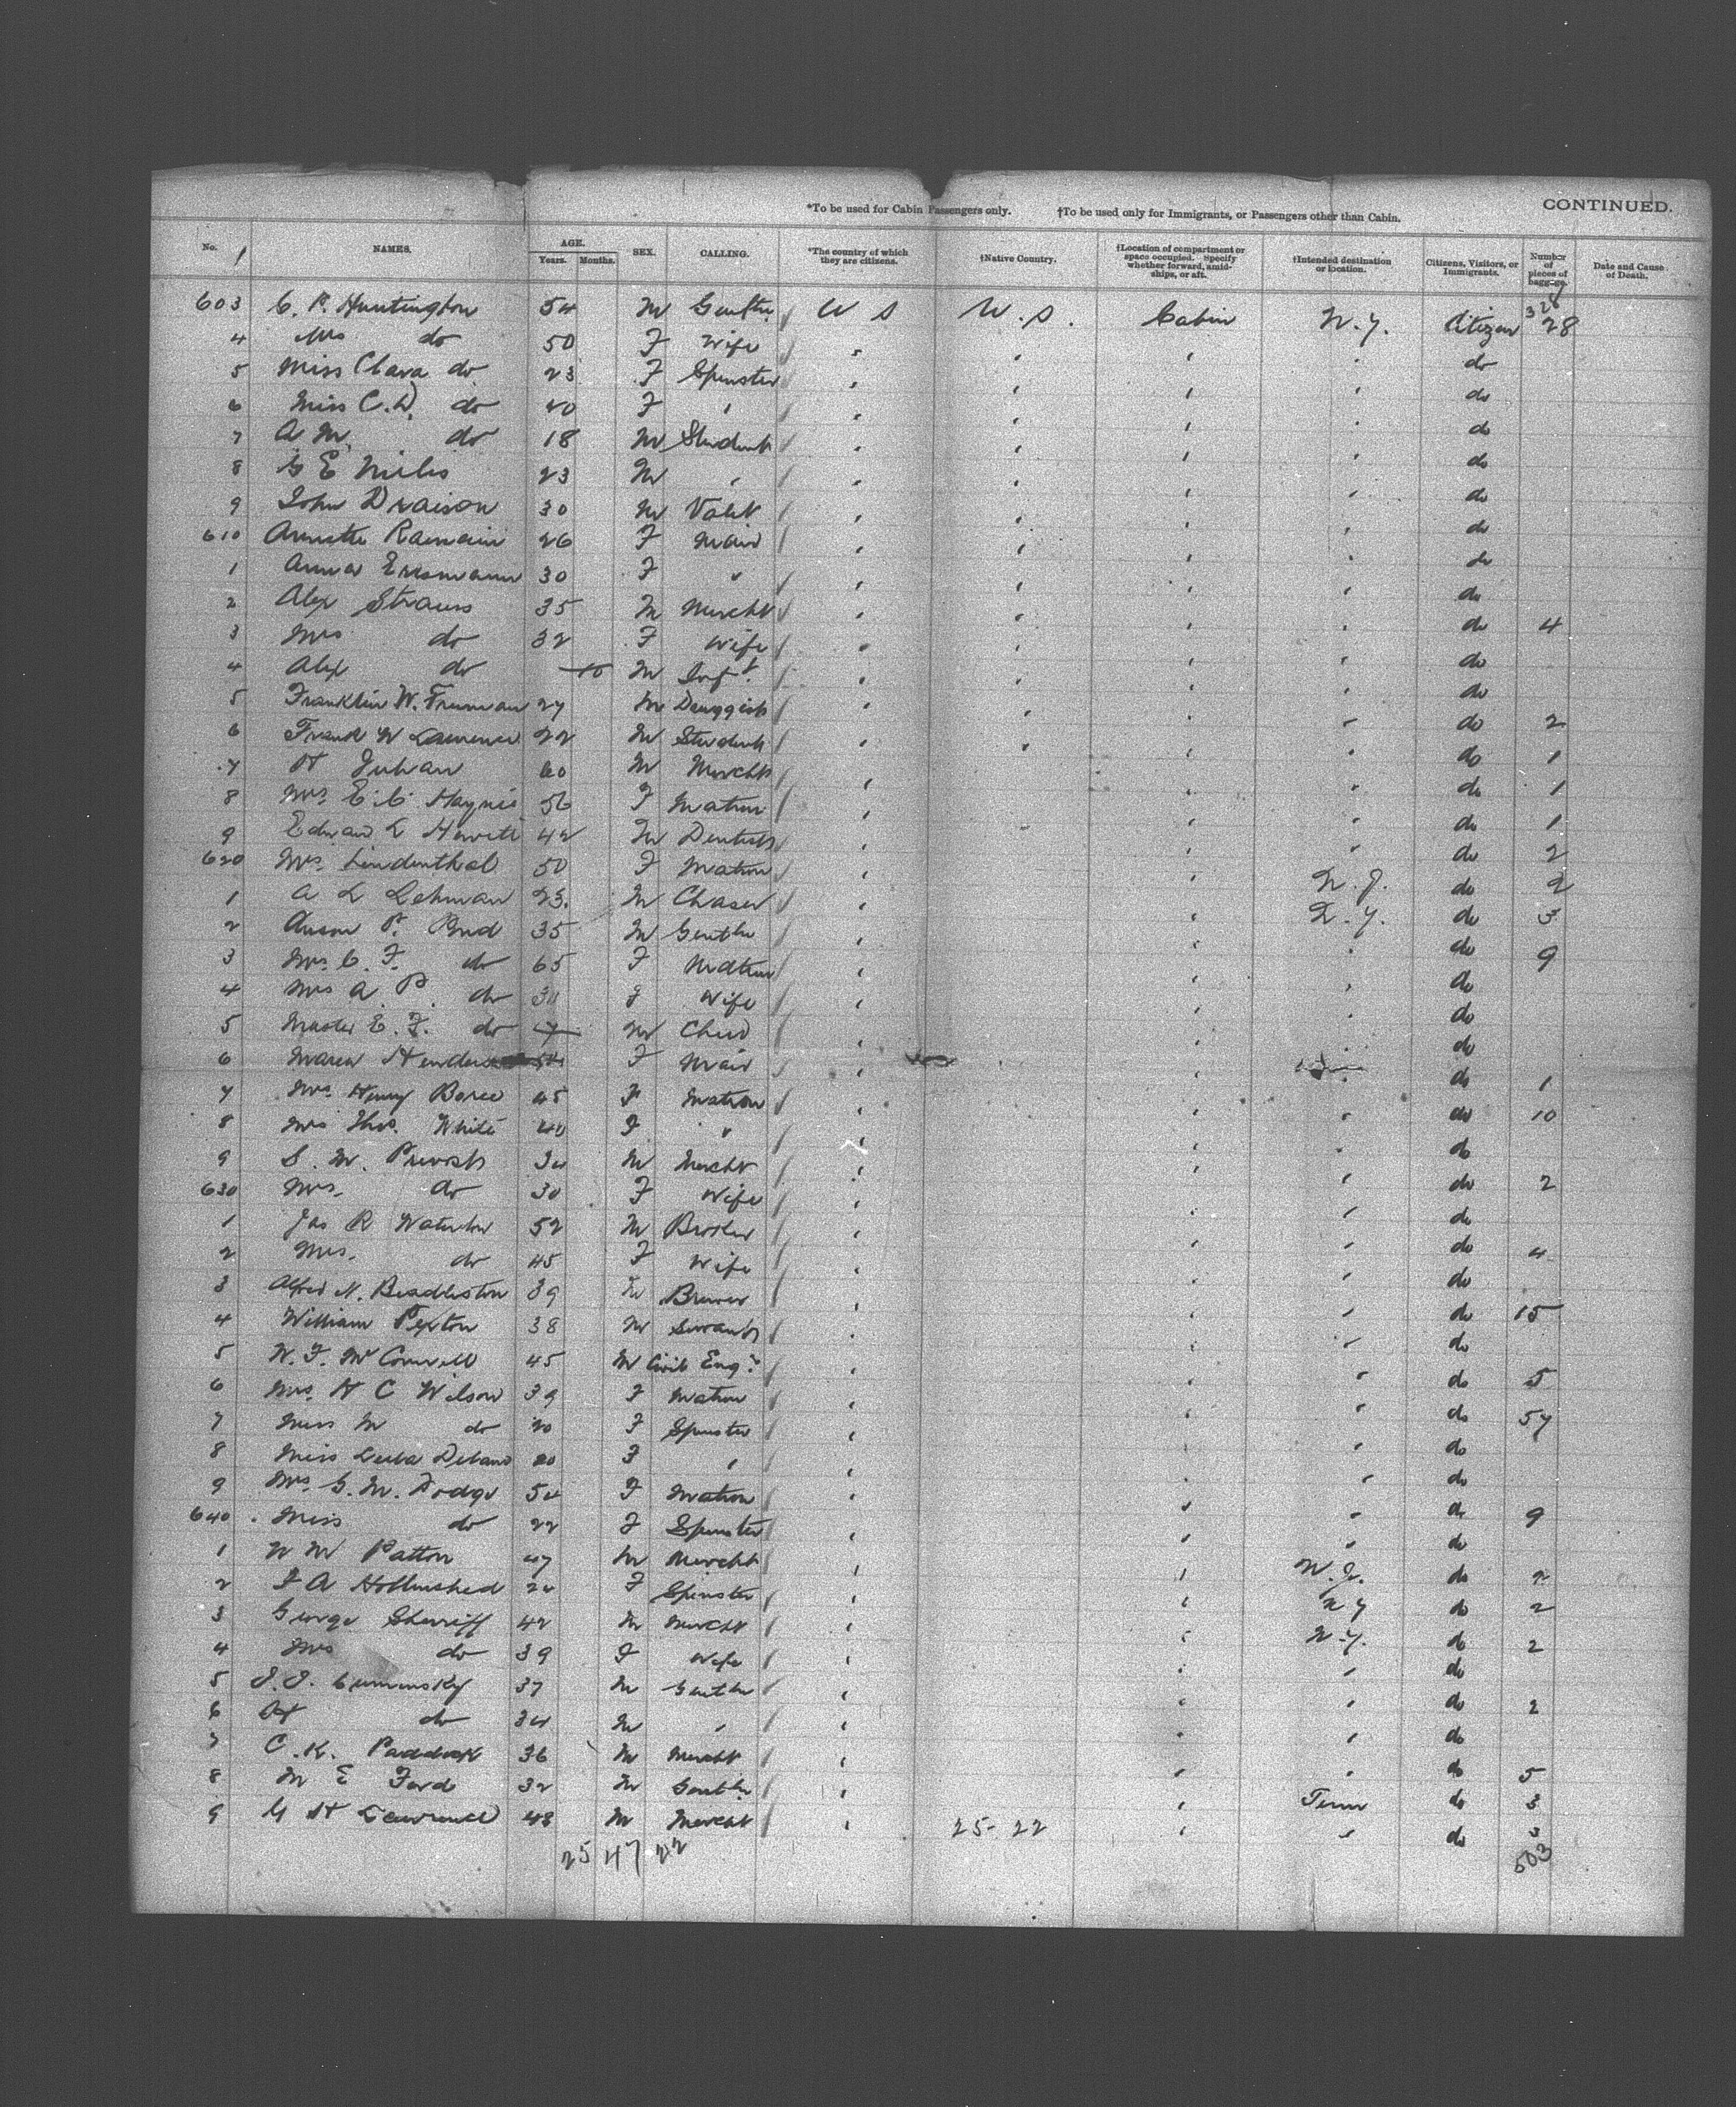 CONTINUED.
*To be used for Cabin Passengers only. †To be used only for Immigrants, or Passengers other than Cabin.
No. NAMES. AGE. Years. Months. SEX. CALLING. *The country of which they are citizens. †Native Country. †Location of compartment or space occupied. Specify whether forward, amidships, or aft. †Intended destination or location. Citizens, Visitors, or Immigrants. Number of pieces of baggage. Date and Cause of Death.
328
603 C. P. Huntington 54 M Gentln U S U.S. Cabin N.Y. Citizen 28
4 Mrs do 50 F Wife do
5 Miss Clara do 23 F Spinster do
6 Miss C. D. do 40 F " do
7 A M. do 18 M Student do
8 G E Miles 23 M " do
9 John Draison 30 M Valet do
610 Annette 26 F Maid do
1 Anna 30 F " do
2 Alex Strauss 35 M Mercht do 4
3 Mrs do 32 F Wife do
4 Alex do 10 M Inft do
5 Franklin W. Truman 27 M Druggist do 2
6 Frank W Lawrence 22 M Student do 1
7 H Julian 60 M Mercht do 1
8 Mrs E. C. Haynie 56 F Matron do 1
9 Edward L Hewett 42 M Dentist do 2
620 Mrs Lindenthal 50 F Matron N.J. do 2
1 A L Lehman 23 M Chaser N.Y. do 3
2 Anson P. 35 M Gentln do 9
3 Mrs C. F. do 65 F Matron do
4 Mrs A. P. do F Wife do
5 Master E. F. do 7 M Child do
6 Maria F Maid do 1
7 Mrs Henry 45 F Matron do 10
8 Mrs Thos. White 40 F " do
9 S. M. Prevost 34 M Mercht do 2
630 Mrs. do 30 F Wife do
1 Jas R Waterlow 52 M Broker do 4
2 Mrs. do 45 F Wife do
3 Alfred N. Beadleston 39 M Brewer do 15
4 William Pexton 38 M Servant do
5 W. F. McConnell 45 M Civil Engr do 5
6 Mrs H C Wilson 39 F Matron do 57
7 Miss M do 20 F Spinster do
8 Miss Leila 20 F " do
9 Mrs. G. M. Dodge 54 F Matron do 9
640 Miss do 22 F Spinster do
1 W M Patton 47 M Mercht N.J. do 2
2 F A Hollinshed 24 F Spinster N Y do 2
3 George Sherriff 42 M Mercht N.Y. do 2
4 Mrs do 39 F Wife do
5 J. J. 37 M Gentln do 2
6 do 34 M " do
7 C. K. Paddock 36 M Mercht do 5
8 M E Ford 32 M Gentln Tenn do 3
9 G H Lawrence 48 M Mercht do 3
25 47 22 25- 22 503